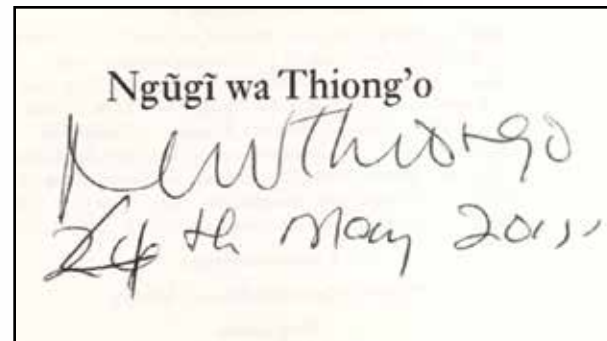 Ngũgĩ wa Thiong'o
NWThiongo
24th May 2011